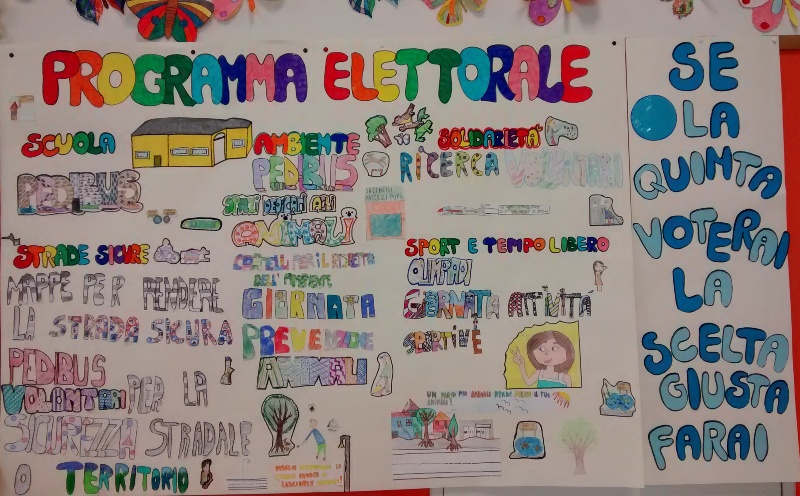 PROGRAMMA ELETTORALE
SCUOLA
PEDIBUS
STRADE SICURE
MAPPE PER RENDERE
LA STRADA SICURA
PEDIBUS
VOLONTARI PER LA
SICUREZZA STRADALE
TERRITORIO
AMBIENTE
PEDIBUS
SPAZI DEDICATI AGLI
ANIMALI
CARTELLI PER IL RISPETO
DELL'AMBIENTE
GIORNATA
PREVENZIONE
ANIMALI
SOLIDARIETÀ
RICERCA VOLONTARI
SPORT E TEMPO LIBERO
OLIMPIADI
GIORNATA ATTIVITA
SPORTIVE
SE
LA
QUINTA
VOTERAI
LA
SCELTA
GIUSTA
FARAI